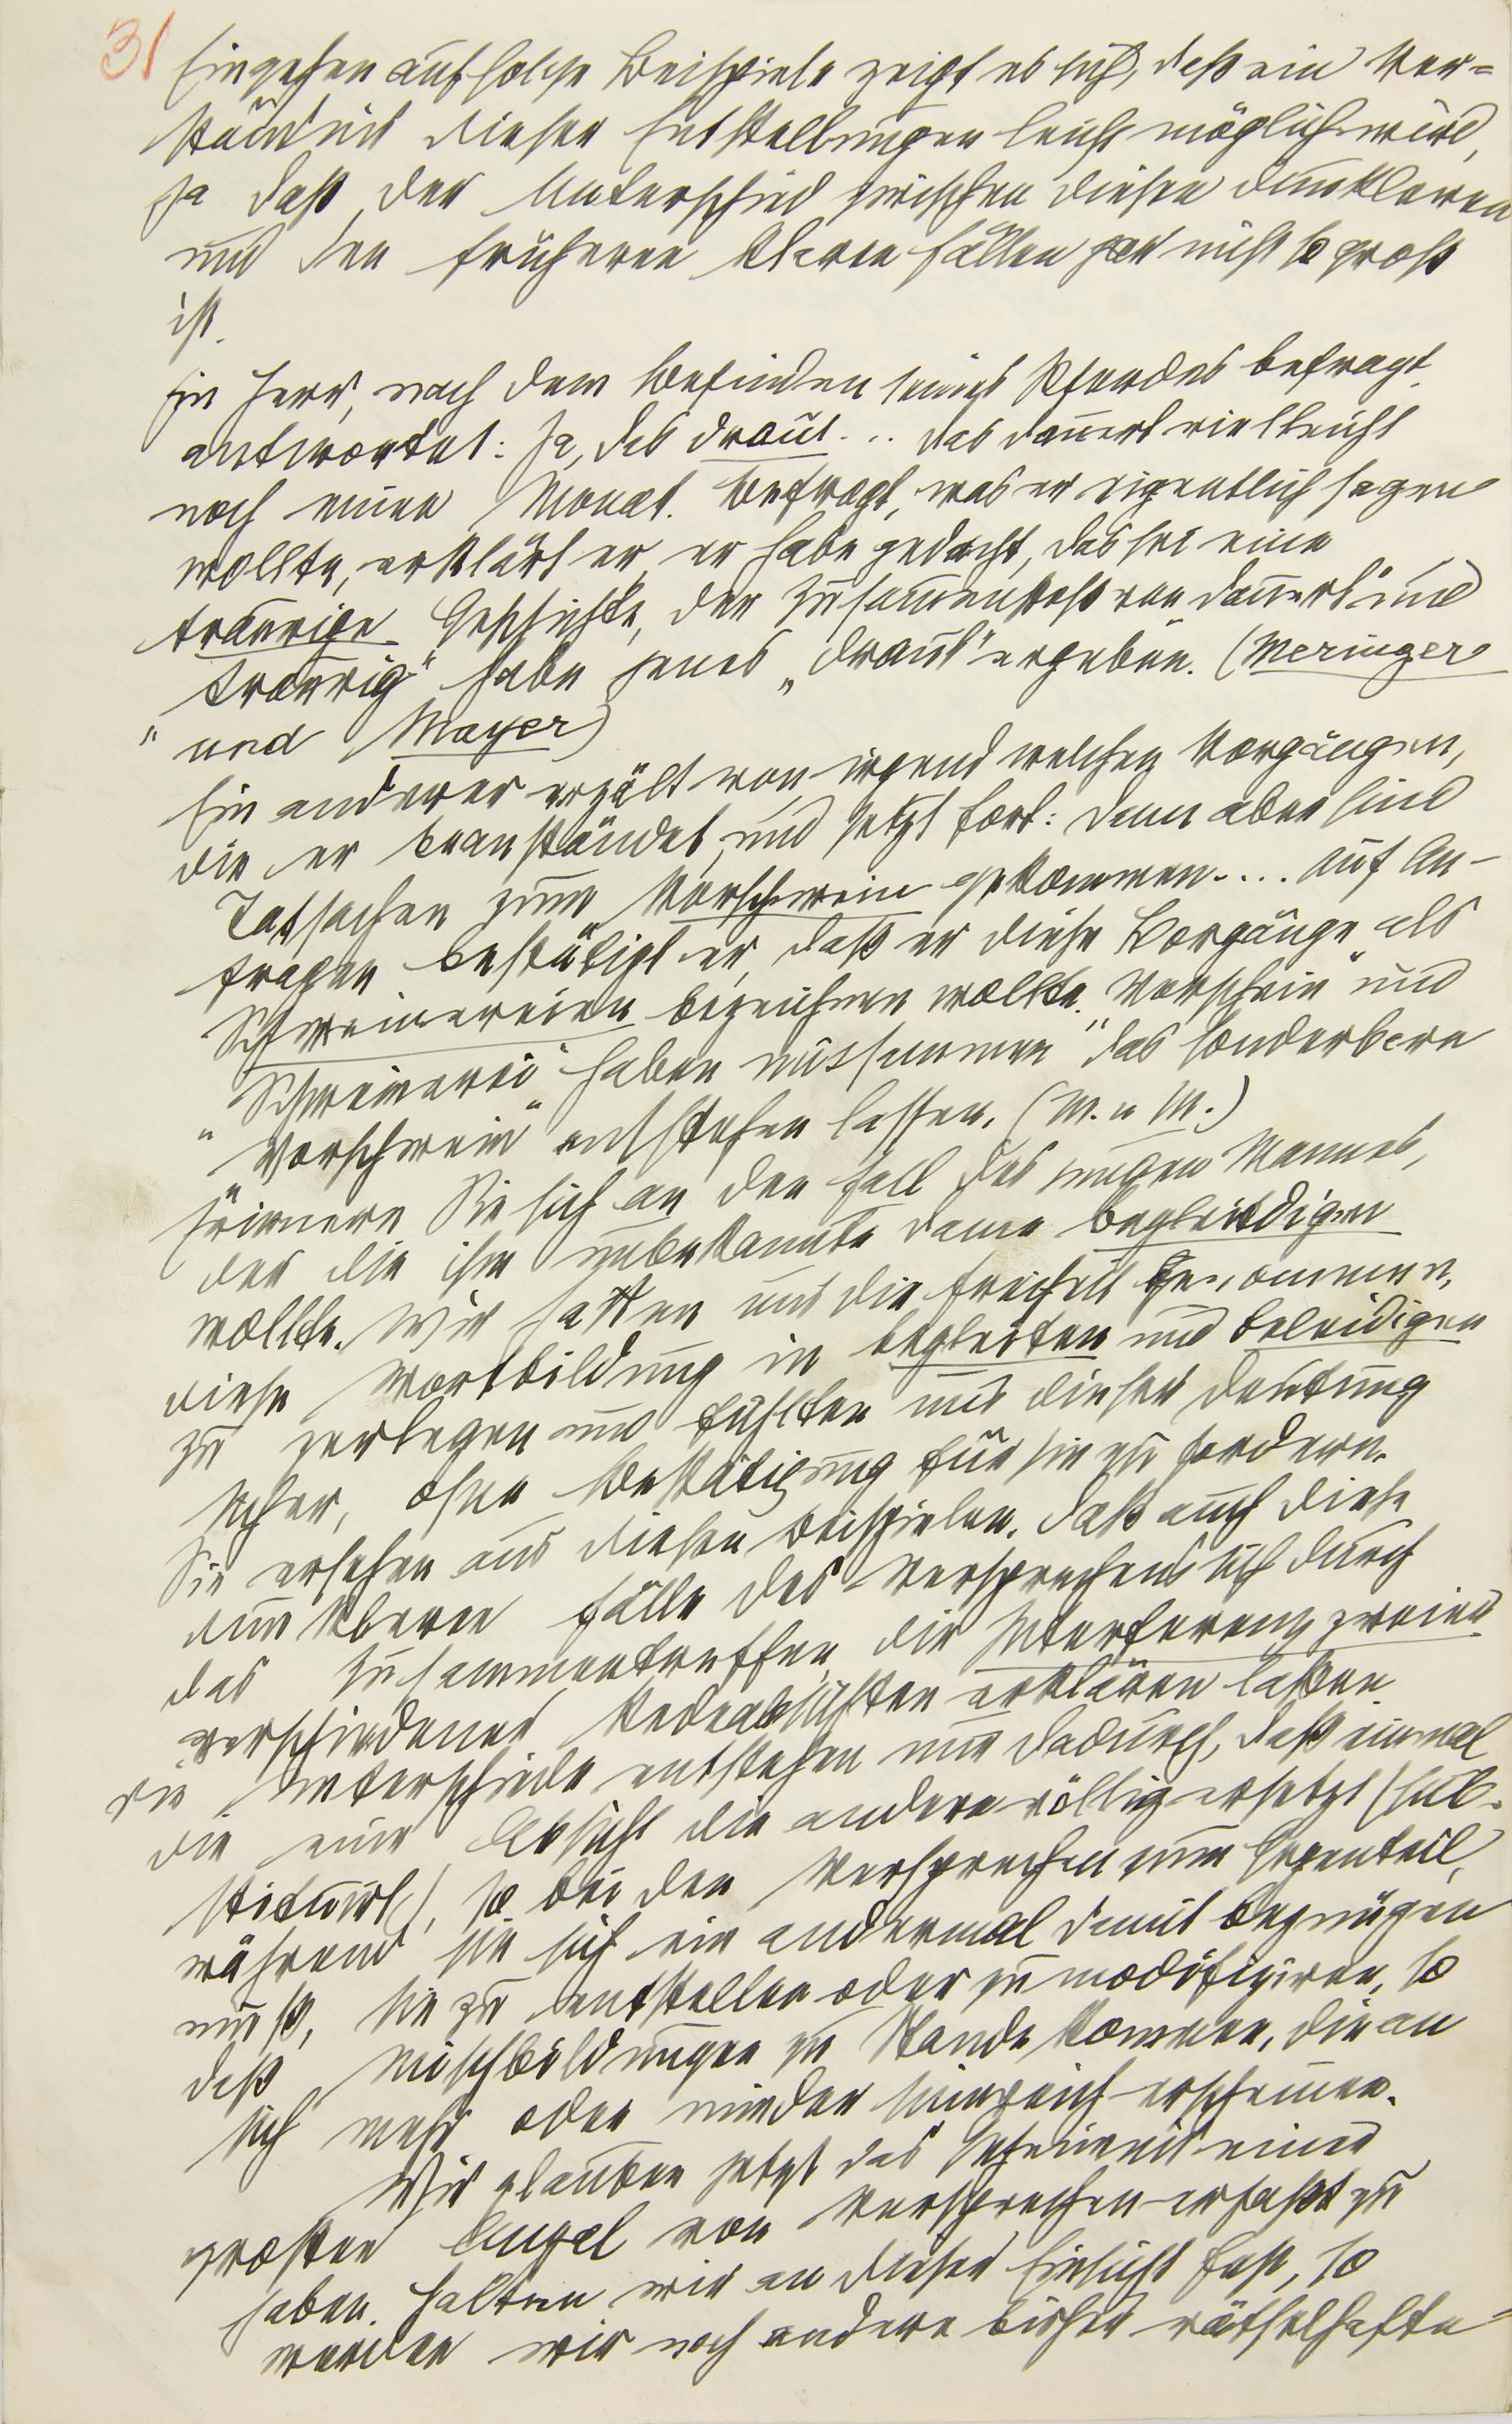 31
Eingehen auf solche Beispiele zeigt es sich, daß ein Ver=
ständnis dieser Entstellungen leicht möglich wird,
ja daß der Unterschied zwischen diesen dunkleren
und den früheren klaren Fällen gar nicht so groß
ist.
Ein Herr, nach dem Befinden seines Pferdes befragt,
antwortet: Ja, das draut... das dauert vielleicht
noch einen Monat. Befragt, was er eigentlich sagen
wollte, erklärt er, er habe gedacht, das sei eine
traurige Geschichte, der Zusammenstoß von „dauert" und
„traurig" habe jenes „draut" ergeben. (Meringer
und Mayer)
Ein anderer erzält von irgend welchen Vorgängen,
die er beanständet, und setzt fort: Dann aber sind
Tatsachen zum Vorschwein gekommen.... Auf An-
fragen bestätigt er, daß er diese Vorgänge als
Schweinereien bezeichnen wollte. „Vorschein" und
„Schweinerei" haben mitsammen das sonderbare
„Vorschwein" entstehen lassen. (M. u M.)
Erinnern Sie sich an den Fall des jungen Mannes,
der die ihm unbekannte Dame begleitdigen
wollte. Wir hatten uns die Freiheit genommen,
diese Wortbildung in begleiten und beleidigen
zu zerlegen und fühlten uns dieser Deutung
sicher, ohne Bestätigung für sie zu fordern.
Sie ersehen aus diesen Beispielen, daß auch diese
dunkleren Fälle des Versprechens sich durch
das Zusammentreffen, die Interferenz zweier
verschiedener Redeabsichten erklären laßen.
Die Unterschiede entstehen nur dadurch, daß einmal
die eine Absicht die andere völlig ersetzt (sub-
stituirt), so bei den Versprechen zum Gegenteil,
während sie sich ein andermal damit begnügen
muß, sie zu entstellen oder zu modifiziren, so
daß Mischbildungen zu Stande kommen, die an
sich mehr oder minder sinnreich erscheinen.
Wir glauben jetzt das Geheimnis einer
großen Anzal von Versprechen erfaßt zu
haben. Halten wir an dieser Einsicht fest, so
werden wir noch andere bisher rätselhafte